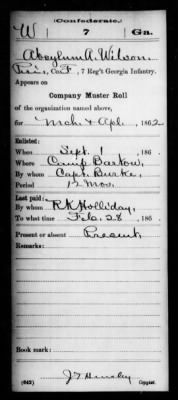 (Confederate.)
W 7 Ga.
A. Wilson
Co. F, 7 Reg't Georgia Infantry.
Appears on
Company Muster Roll
of the organization named above,
for Mch & Apl, 1862
Enlisted:
When Sept 1, 186 .
Where Camp Bartow,
By whom Capt. Burke,
Period 12 Mos.
Last paid:
By whom R K Holliday,
To what time Feb. 28, 186 .
Present or absent Present
Remarks:
Book mark:
(642) Copyist.